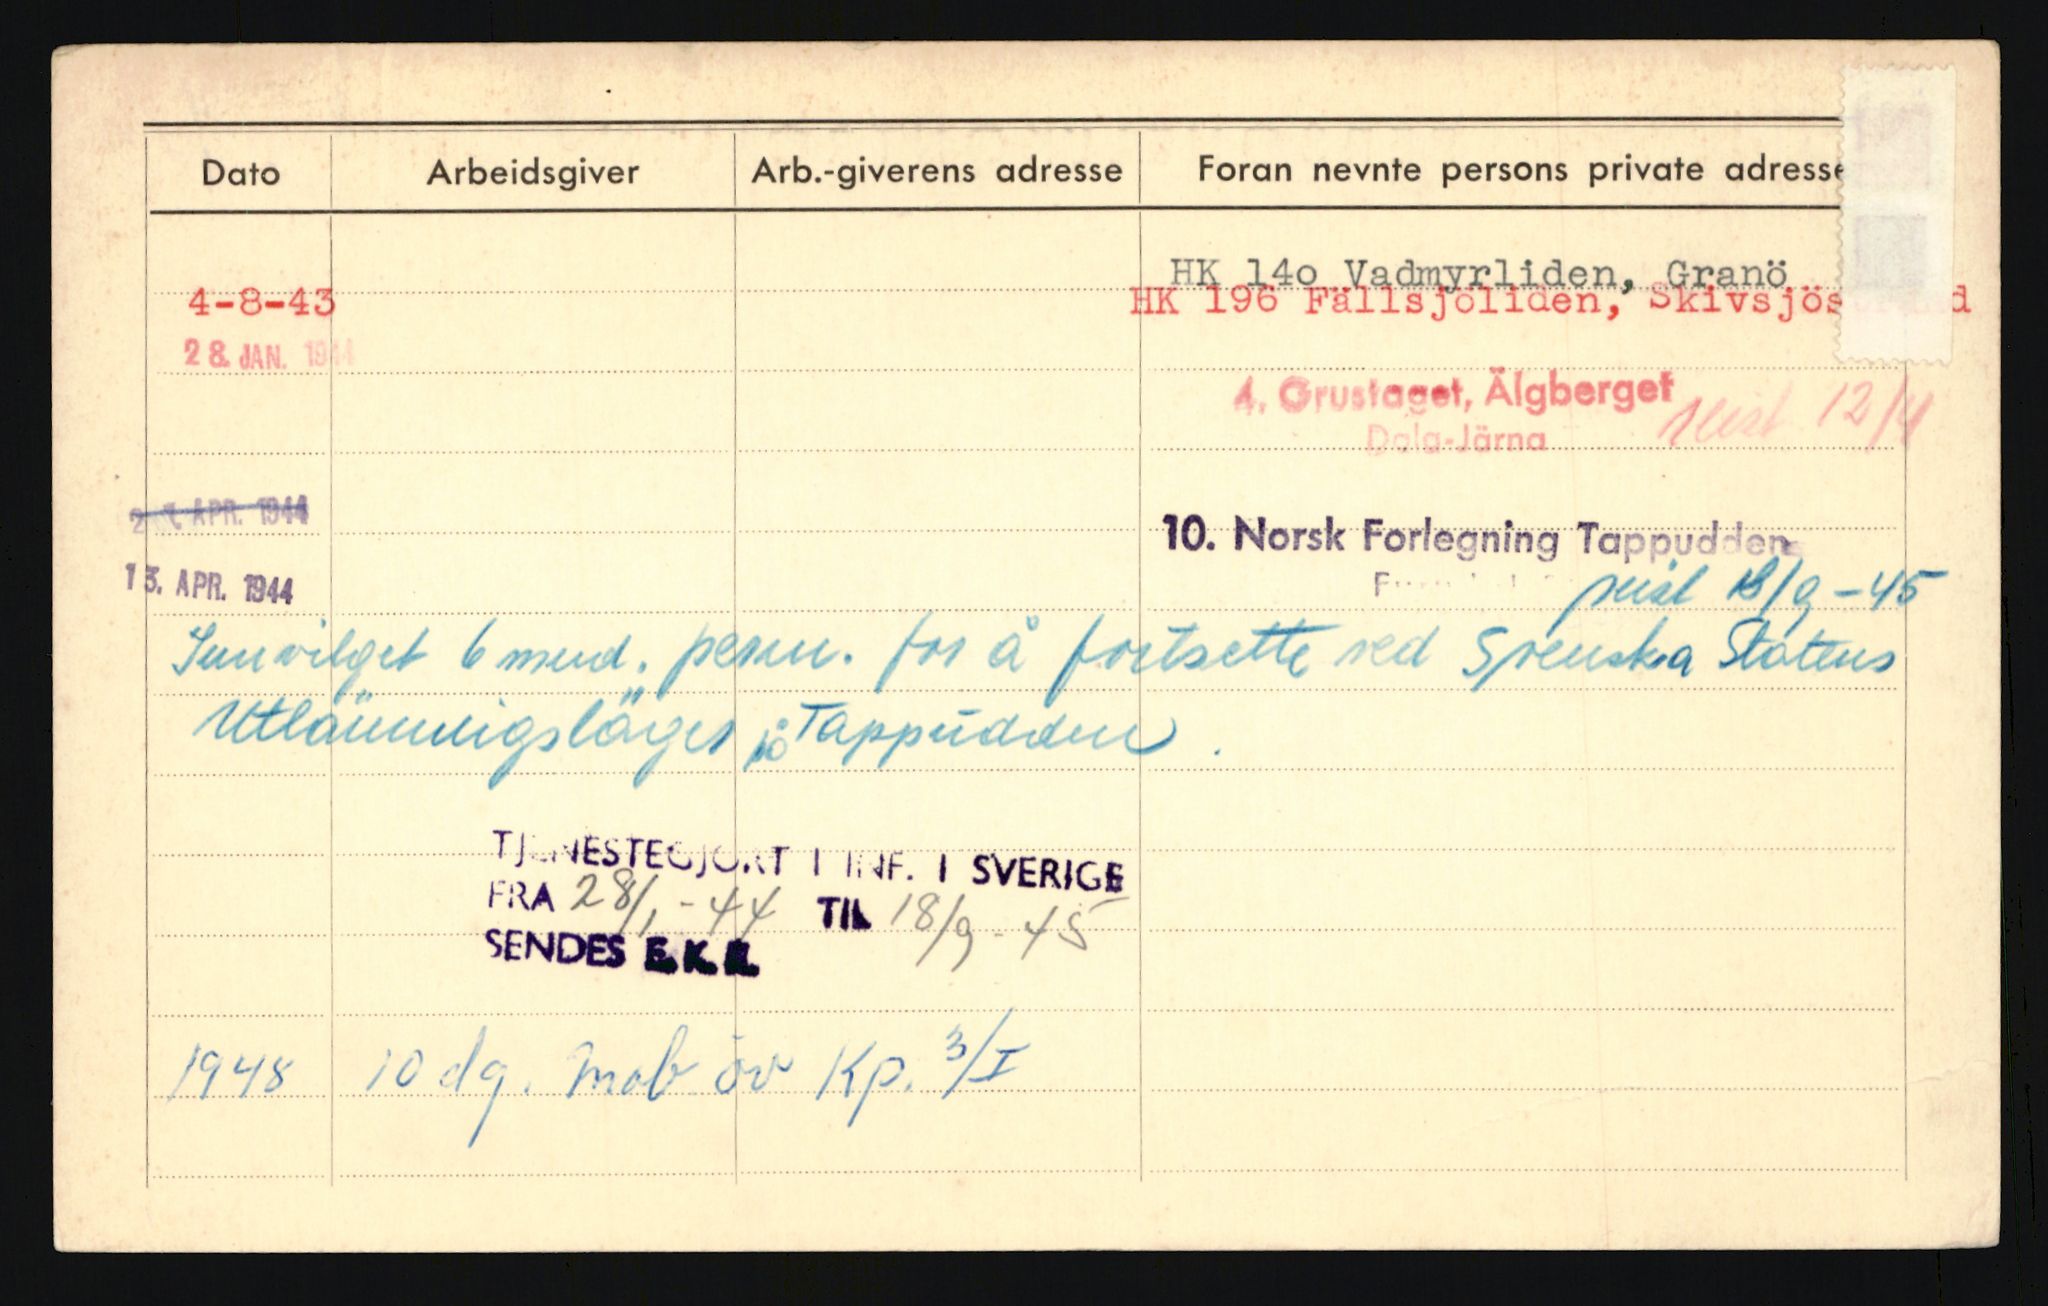 Dato Arbeidsgiver Arb.-giverens adresse Foran nevnte persons private adresse
HK 14o Vadmyrliden, Granö
4-8-43 HK 196 Fällsjöliden,
28. JAN. 1944
4. Grustaget, Älgberget
Dala-Järna 12/4
APR. 1944 10. Norsk Forlegning Tappudden
13. APR. 1944 18/9-45
Innvilget 6 mnd. perm. for å fortsette ved Svenska Statens
Utlänningsläger på Tappudden.
TJENESTEGJORT I INF. I SVERIGE
FRA 28/1-44 TIL 18/9-45
SENDES
1948 10 dg. Mob öv Kp. 3/I